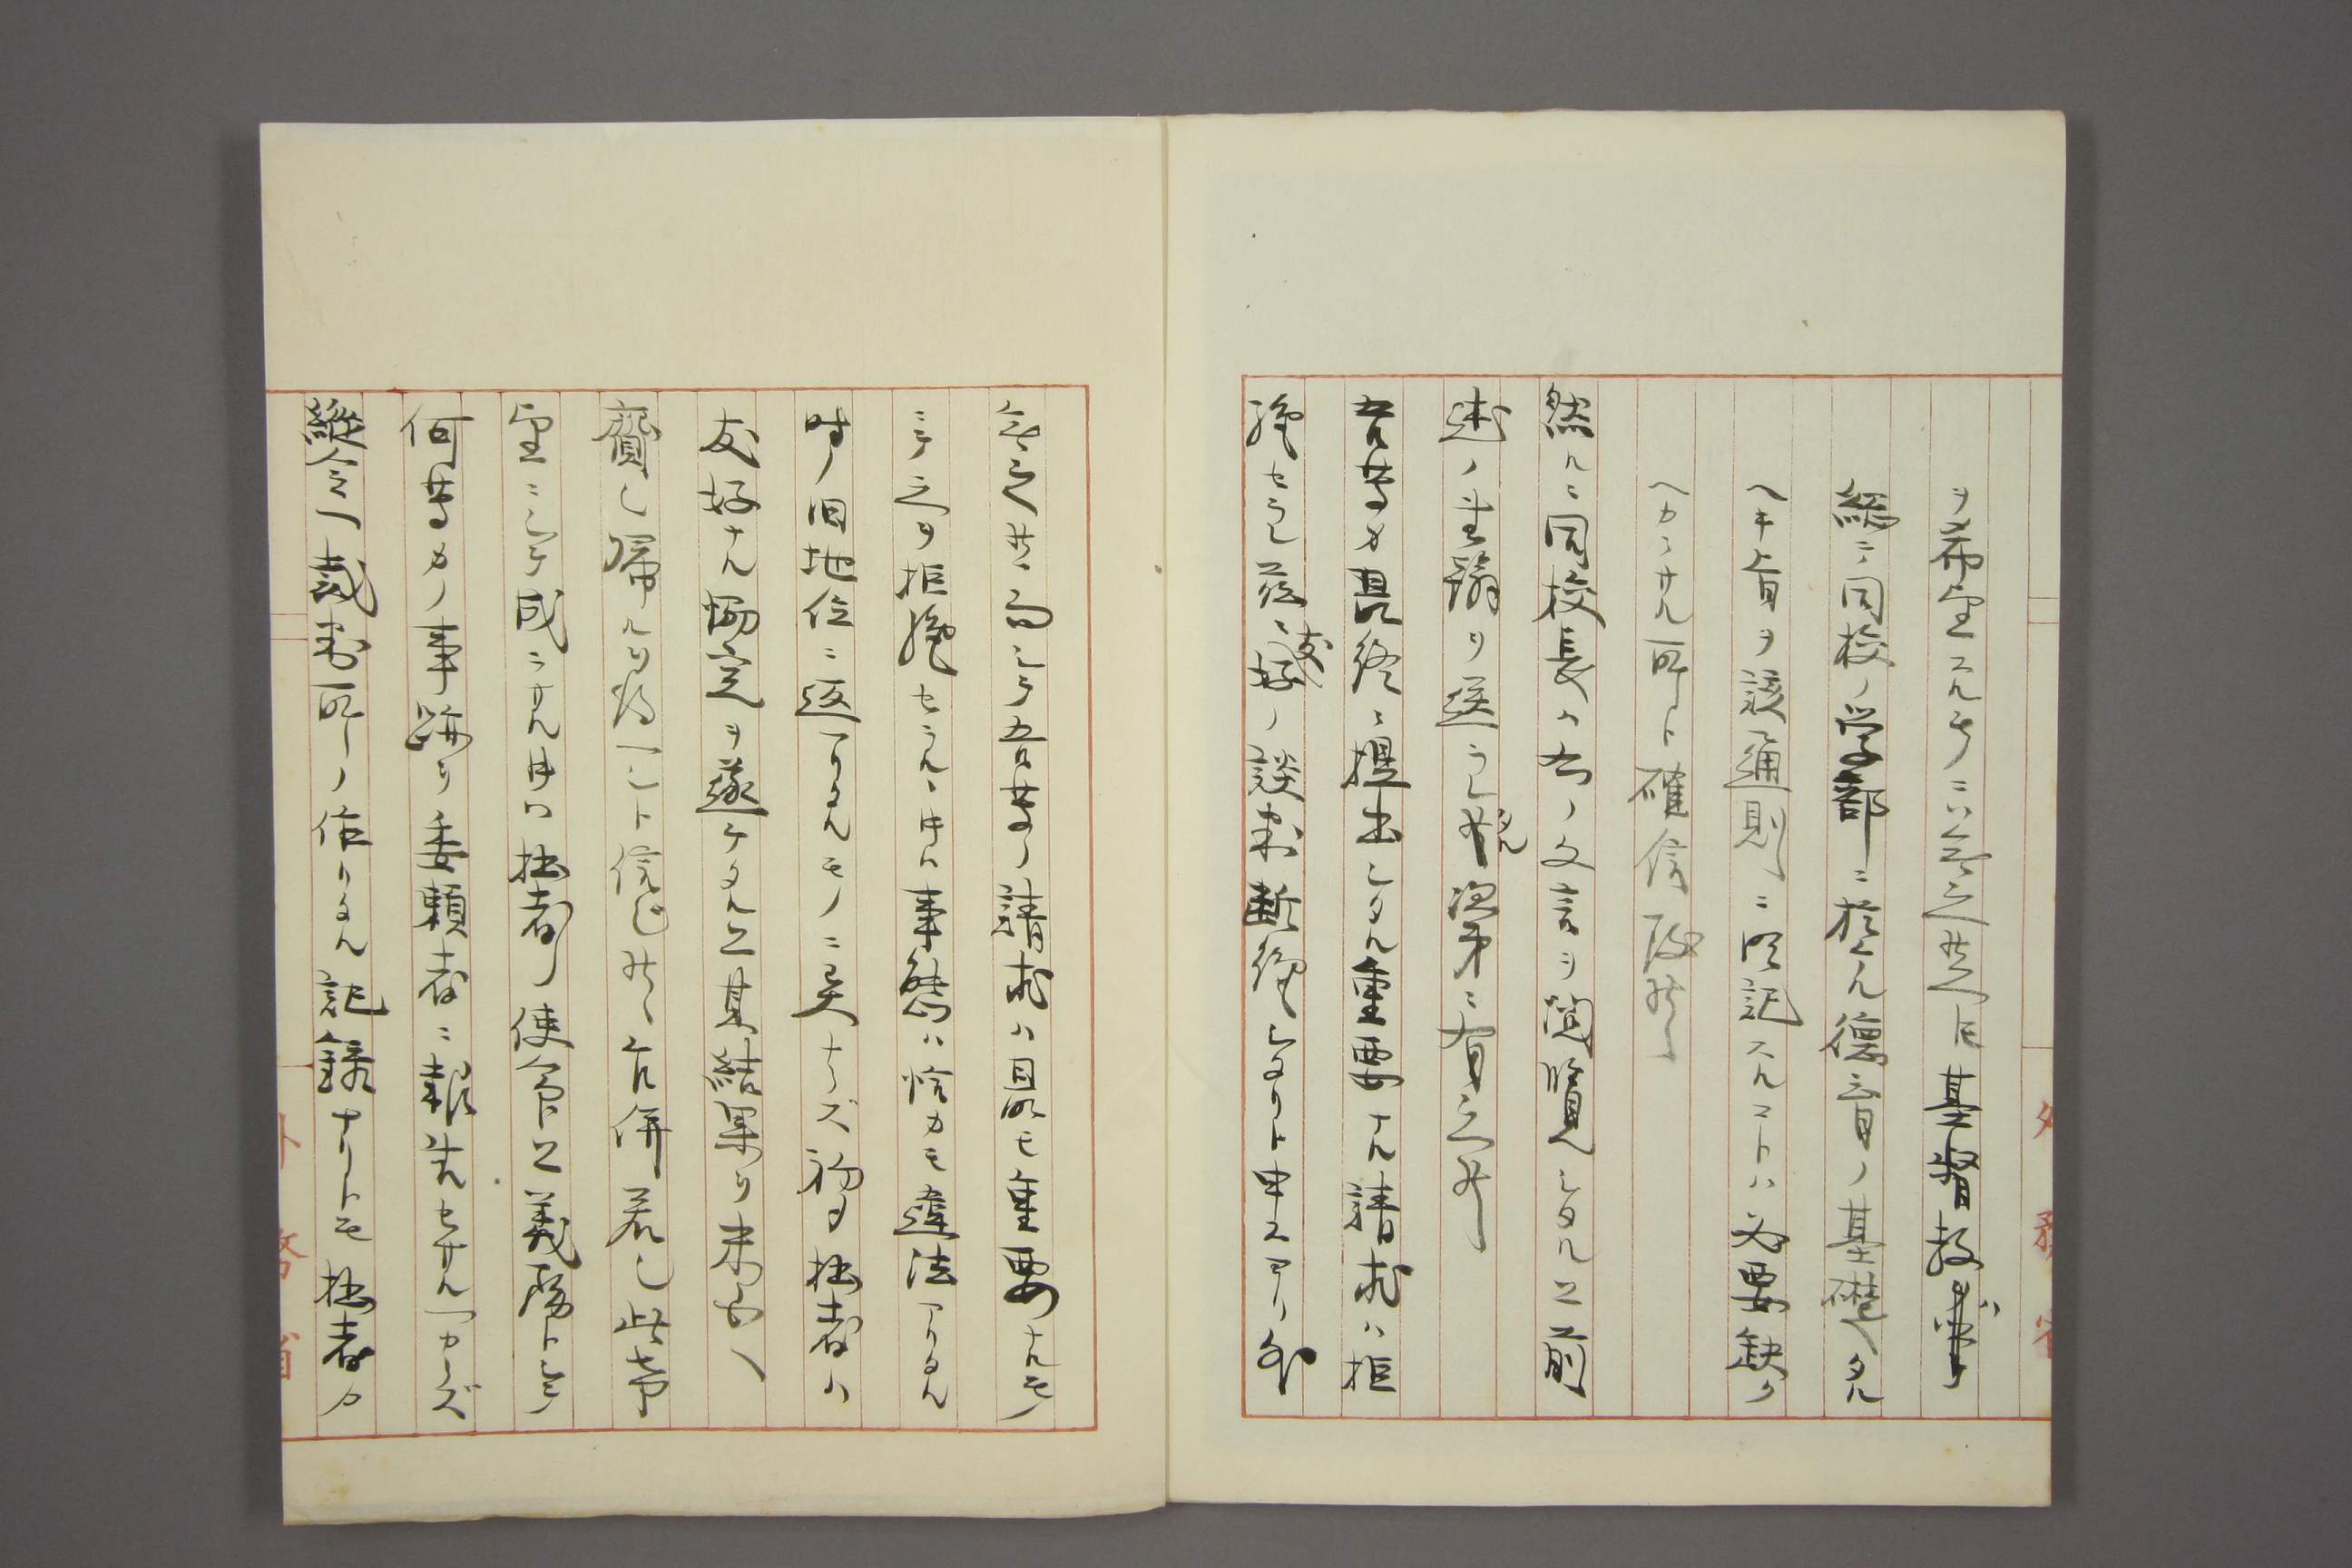 ヲ希望スルモノニハ無之候得共基督教ガ
縦ニ同校ノ学部ニ於ケル徳育ノ基礎タル
ヘキ旨ヲ該通則ニ明記スルコトハ必要缺ク
ヘカラサル所ト確信致候
然ルニ同校長ハ右ノ文言ヲ閲覧シタル上前
述ノ書翰ヲ送ラレタル次第ニ有之候
吾等カ最終ニ提出シタル重要ナル請求ハ拒
絶セラレ茲ニ友好ノ談判断絶シタリト申スヨリ外
無之候而シテ吾等ノ請求ハ固ヨリ重要ナルモノ
ニテ之ヲ拒絶セラルヽ時ハ事態ハ恰カモ違法アリタル
時ノ旧地位ニ返リタルモノニ異ナラズ初メ拙者ハ
友好ナル勘定ヲ遂ケタル上其結果ヲ米国ヘ
齎シ帰ルヲ得ヘシト信シ候ヘ共併若シ此希
望ニシテ成ラサル時ハ拙者ノ使命上義務トシテ
何等カノ事跡ヲ委頼者ニ報告セサルヘカラズ
縦令ヘ裁判所ノ作リタル記録ナリトモ拙者カ
外務省
外務省